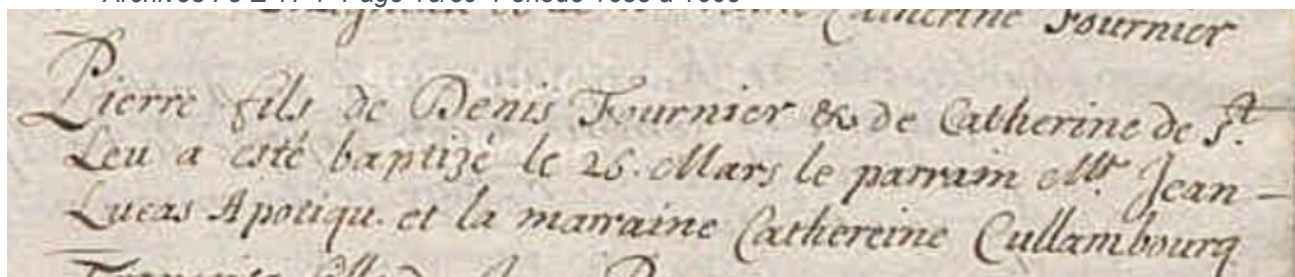 Catherine Fournier
Pierre fils de Denis Fournier & de Catherine de St.
Leu a esté baptizé le 26. Mars le parrain Mtr Jean -
Lucas Apotiqu. et la marraine Cathereine Cullambourg
fille